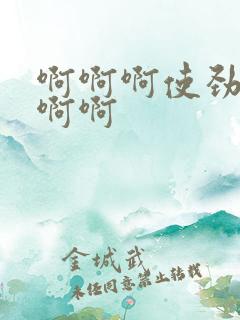 啊啊啊使劲
啊啊
金城武
未经同意禁止转载